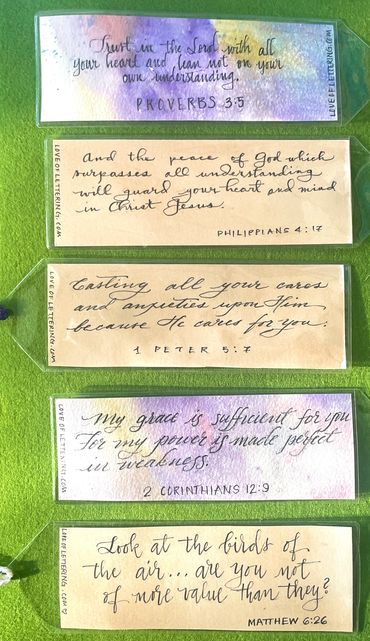 Trust in the Lord with all
your heart and lean not on your
own understanding.
PROVERBS 3:5
LOVEOFLETTERING.COM
LOVEOFLETTERING.COM
And the peace of God which
surpasses all understanding
will guard your heart and mind
in Christ Jesus.
PHILIPPIANS 4:17
LOVE OF LETTERING.COM
Casting all your cares
and anxieties upon Him
because He cares for you.
1 PETER 5:7
LOVE OF LETTERING.COM
My grace is sufficient for you
For my power is made perfect
in weakness.
2 CORINTHIANS 12:9
LOVE OF LETTERING.COM
Look at the birds of
the air... are you not
of more value than they?
MATTHEW 6:26